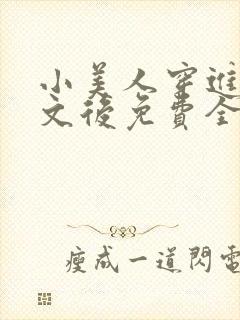 小美人穿進
文後免費全
瘦成一道閃電